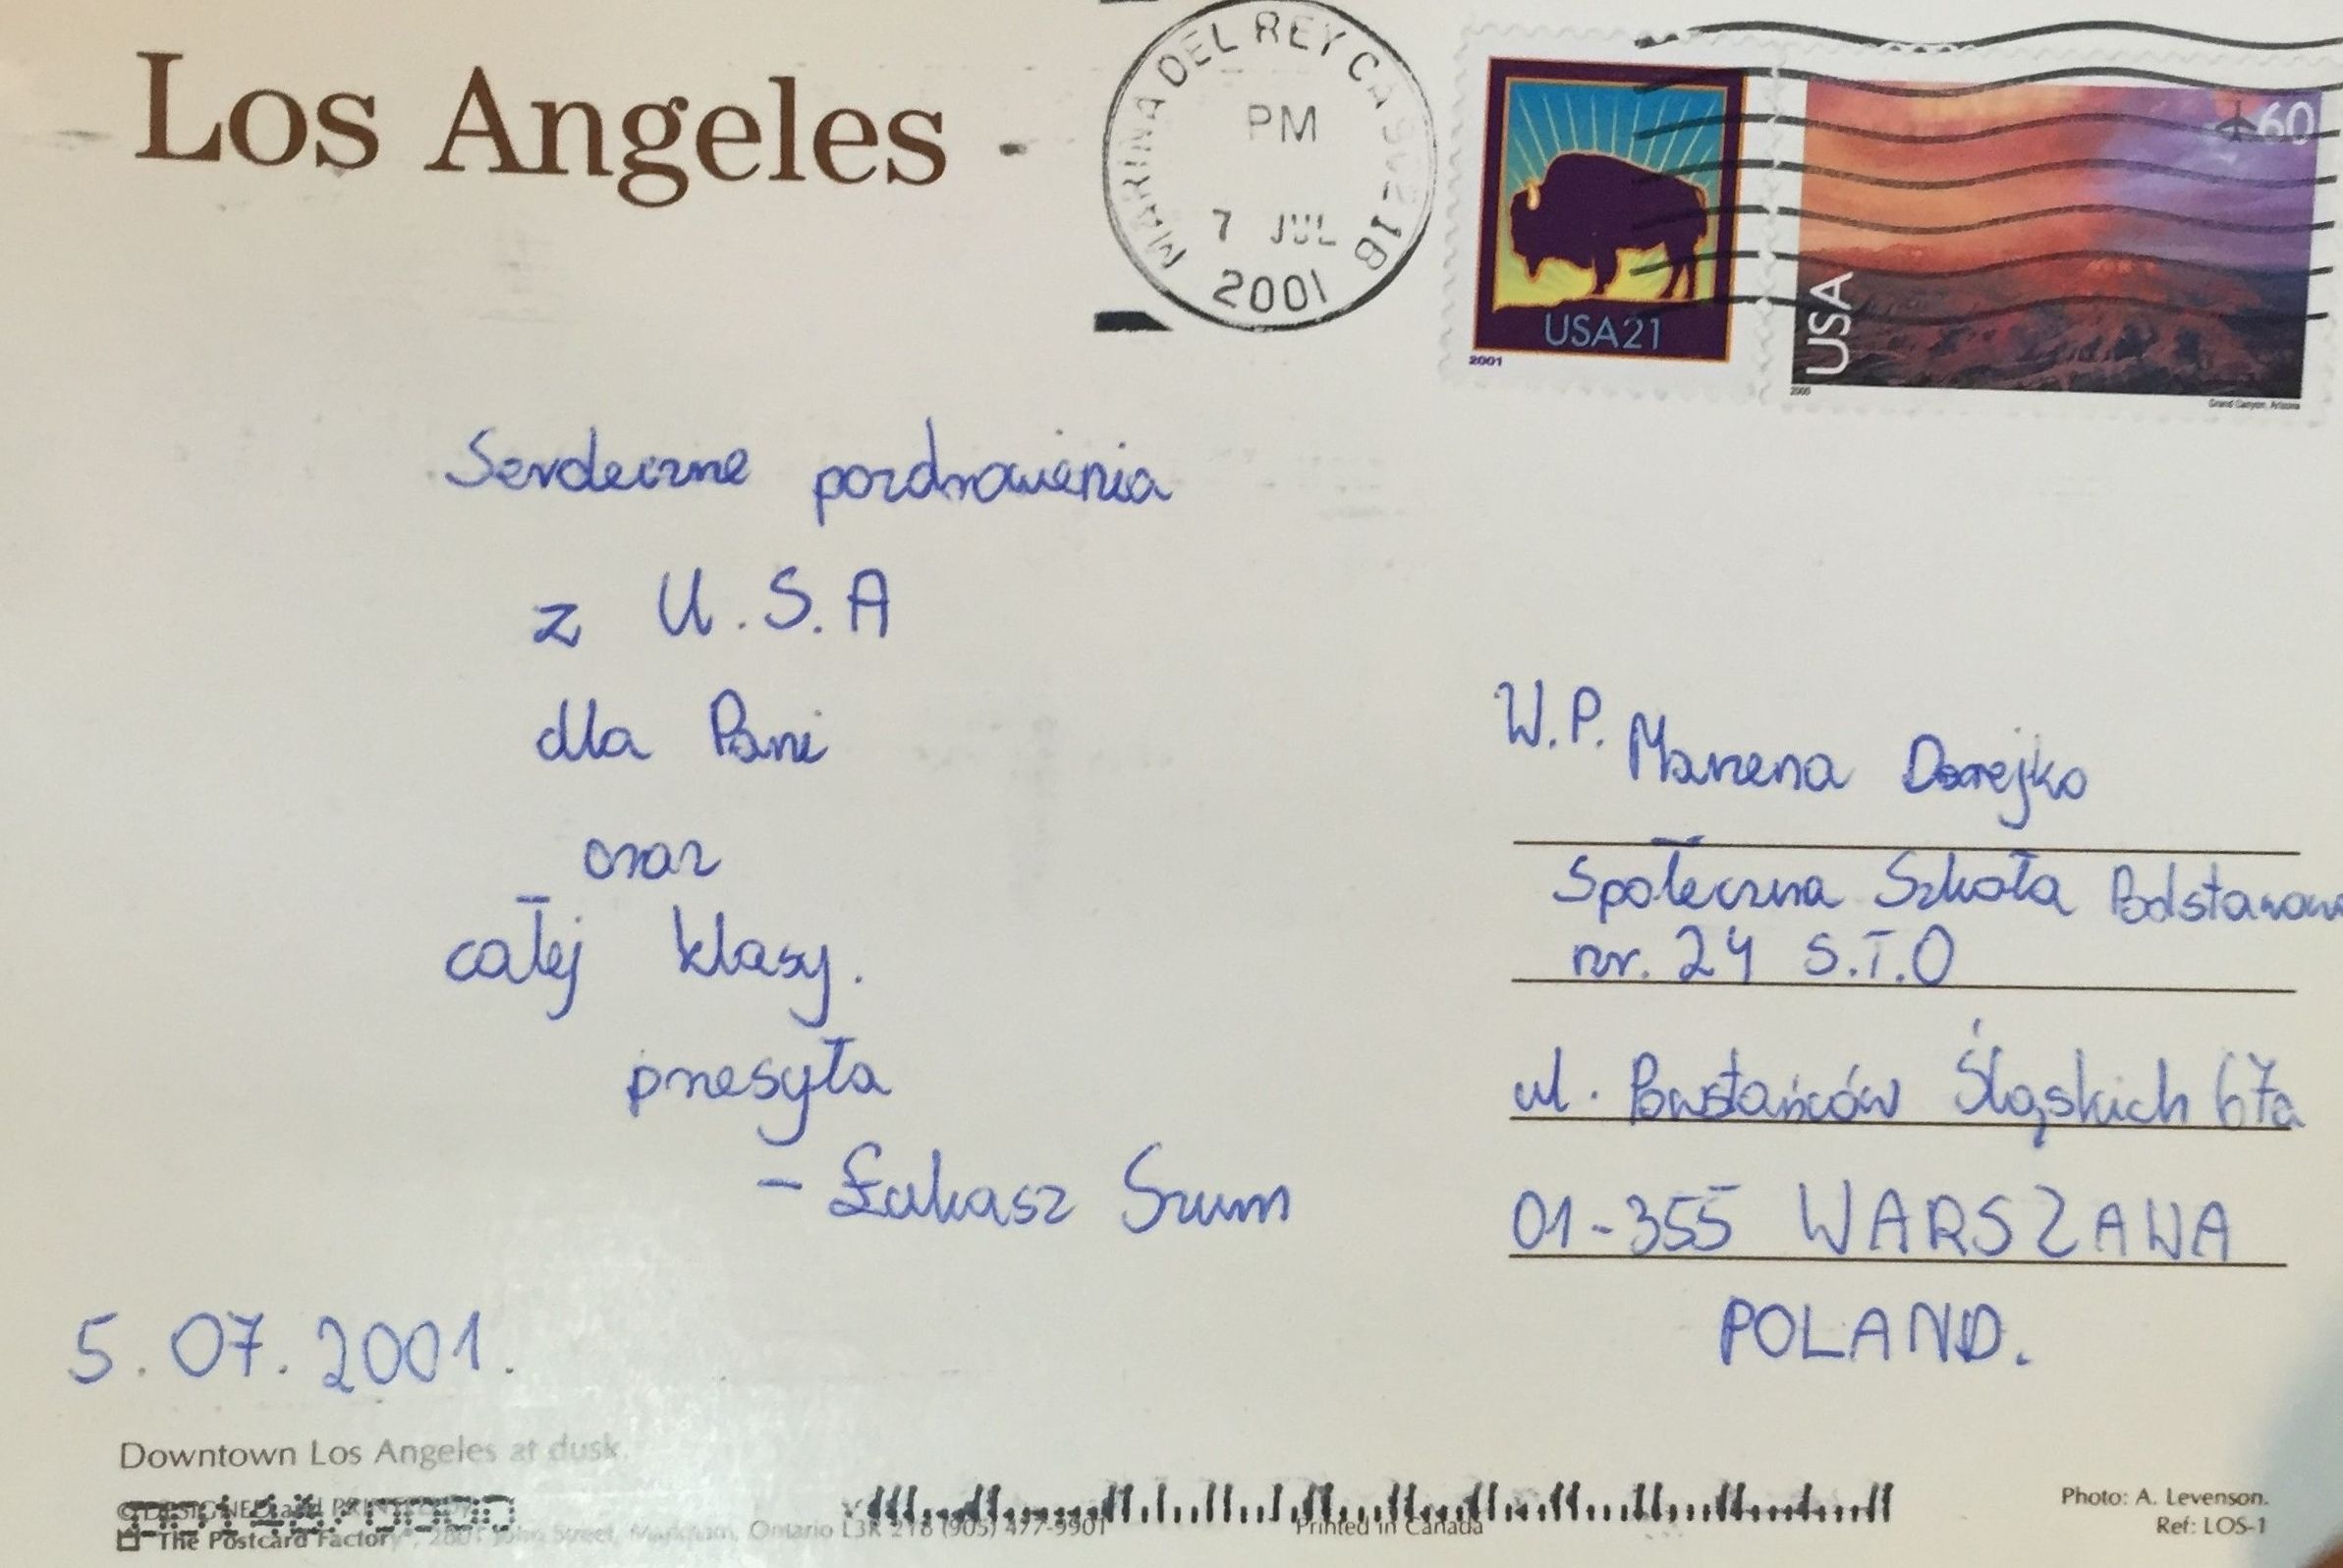 Los Angeles
MARINA DEL REY CA
PM
7 JUL
2001
USA21
2001
60
USA
2000
Grand Canyon, Arizona
Serdeczne pozdrowienia
z U.S.A
dla Pani
oraz
całej klasy.
przesyła
- Łukasz Szum
5.07.2001.
W.P. Marzena
Społeczna Szkoła Podstawowa
nr. 24 S.T.O
ul. Powstańców Śląskich 67a
01-355 WARSZAWA
POLAND.
Downtown Los Angeles at dusk.
© DESIGNED and PRINTED by
The Postcard Factory, 2801 John Street, Markham, Ontario L3R 2Y8 (905) 477-9901
Printed in Canada
Photo: A. Levenson.
Ref: LOS-1